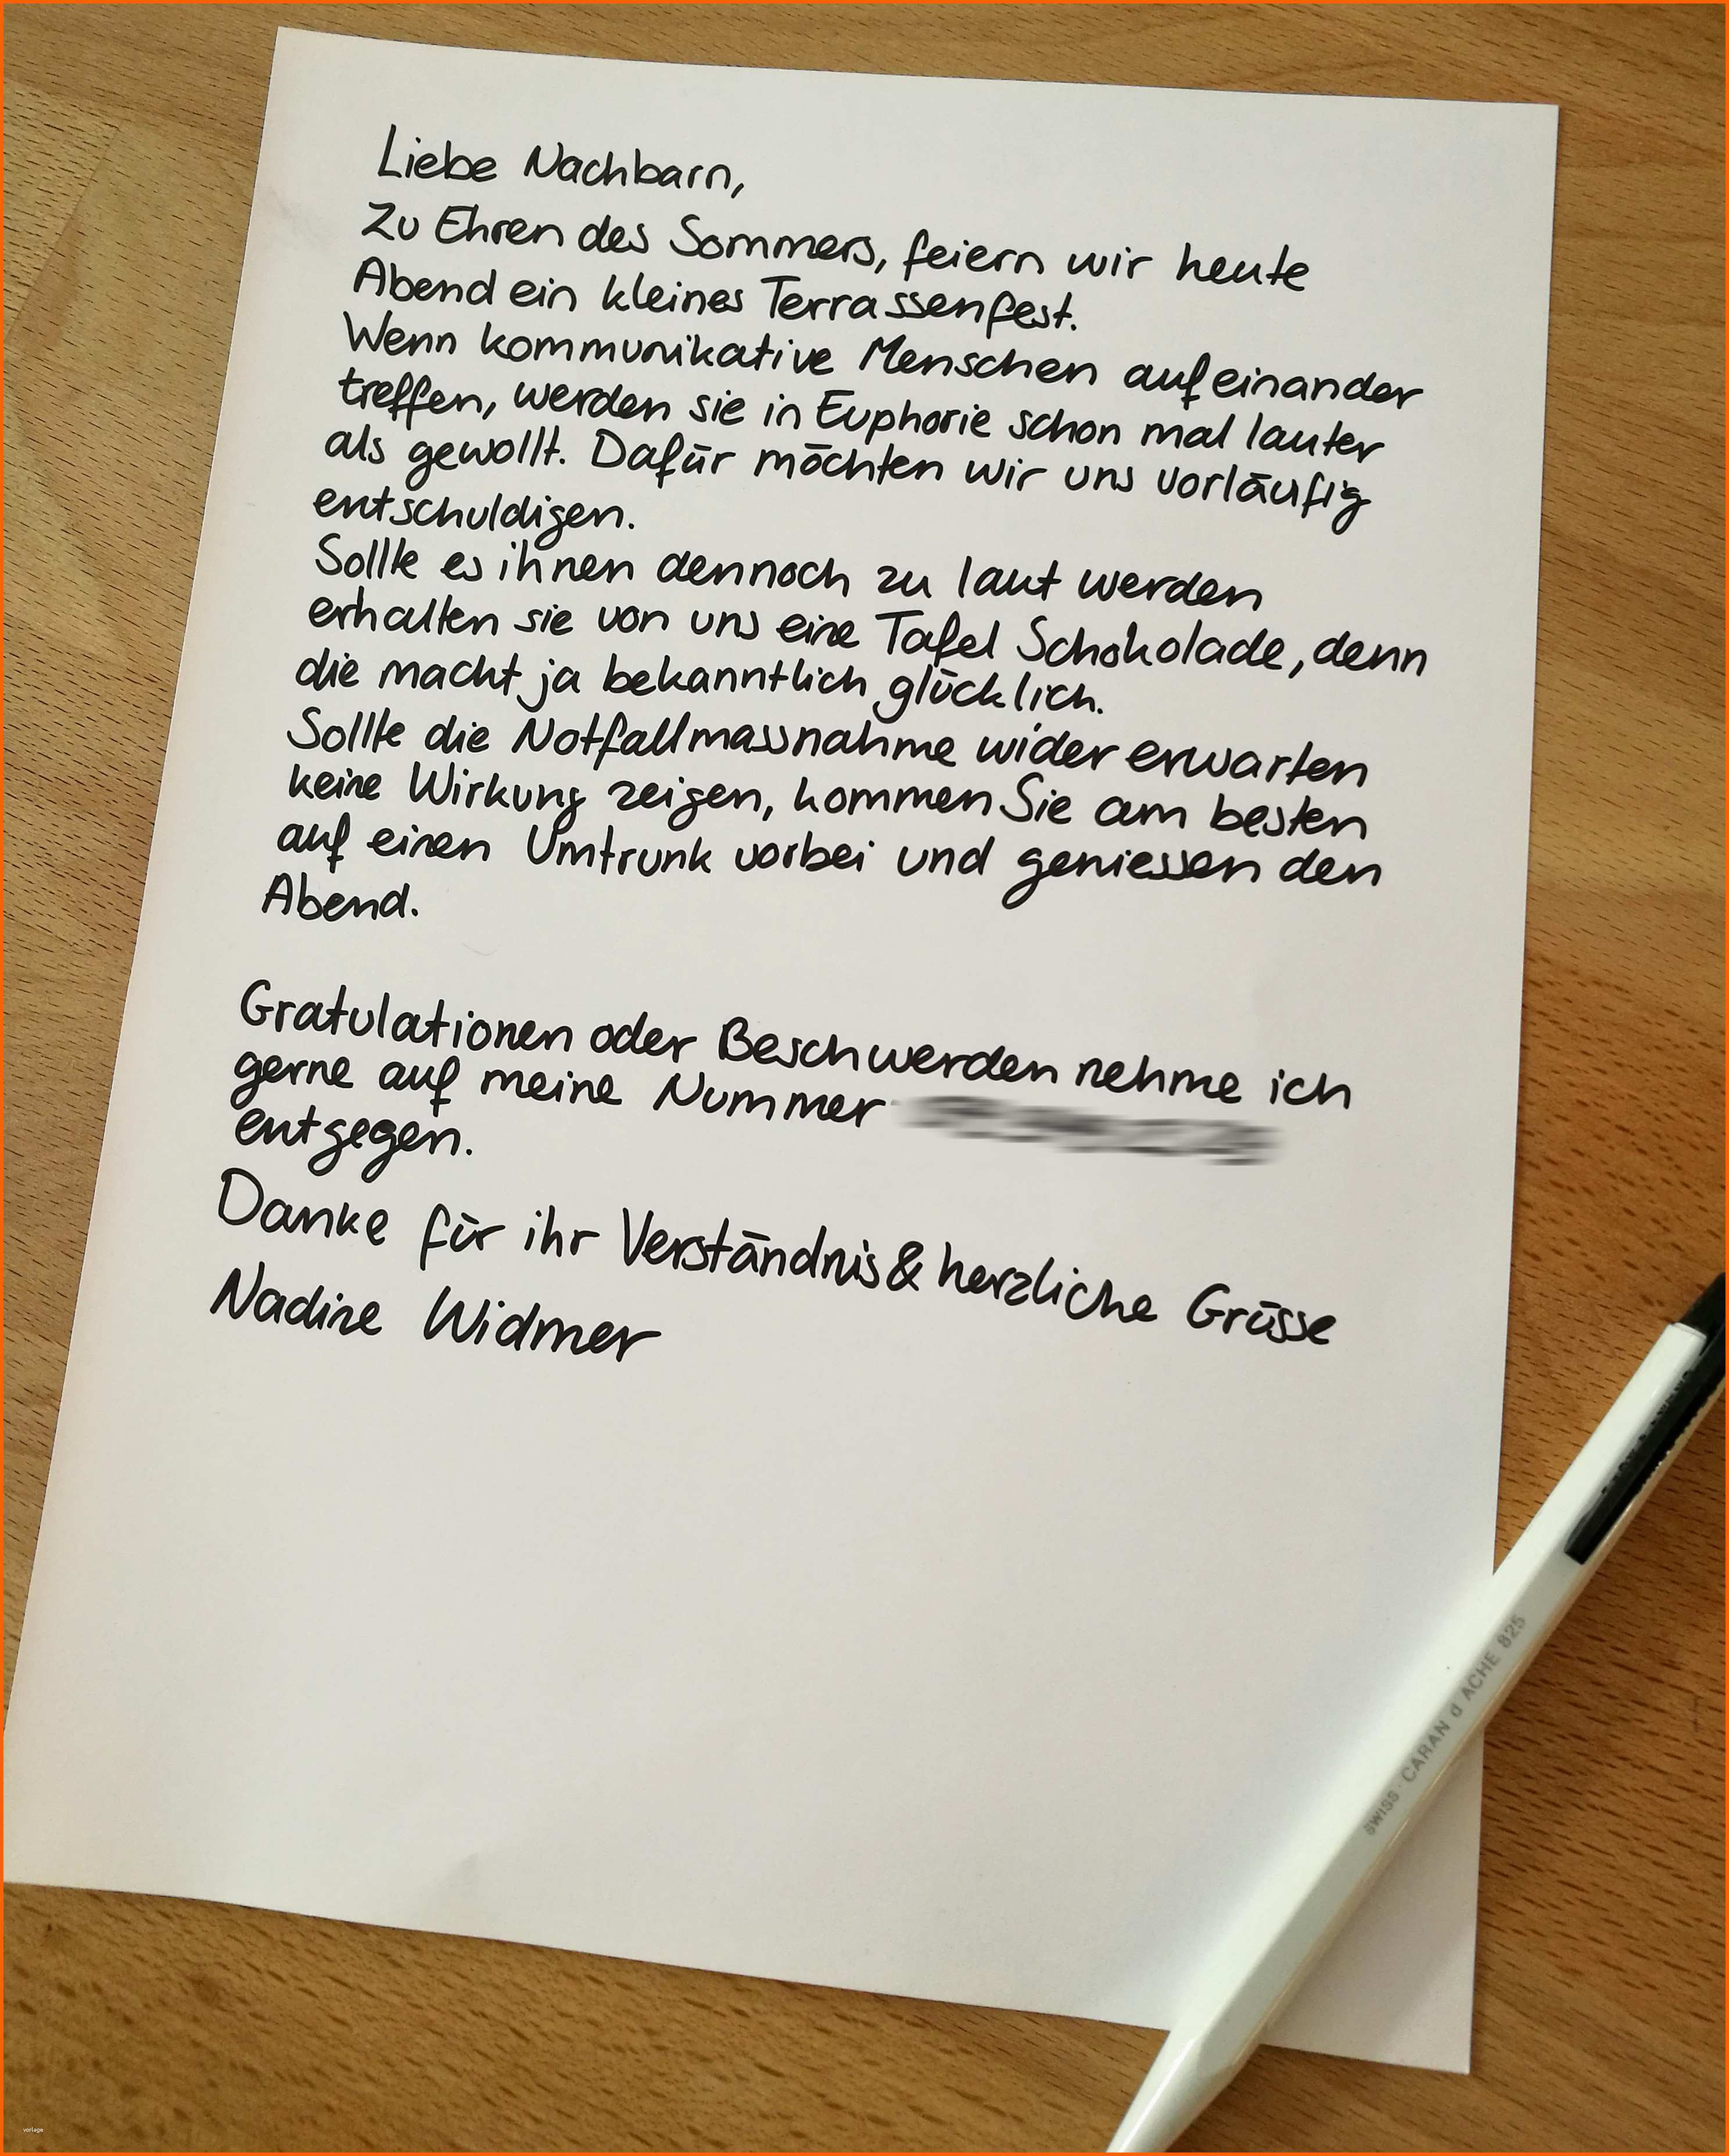 Liebe Nachbarn,
Zu Ehren des Sommers, feiern wir heute
Abend ein kleines Terrassenfest.
Wenn kommunikative Menschen aufeinander
treffen, werden sie in Euphorie schon mal lauter
als gewollt. Dafür möchten wir uns vorläufig
entschuldigen.
Sollte es ihnen dennoch zu laut werden
erhalten sie von uns eine Tafel Schokolade, denn
die macht ja bekanntlich glücklich.
Sollte die Notfallmassnahme wider erwarten
keine Wirkung zeigen, kommen Sie am besten
auf einen Umtrunk vorbei und geniessen den
Abend.
Gratulationen oder Beschwerden nehme ich
gerne auf meine Nummer
entgegen.
Danke für ihr Verständnis & herzliche Grüsse
Nadine Widmer
SWISS · CARAN d'ACHE 825
vorlage